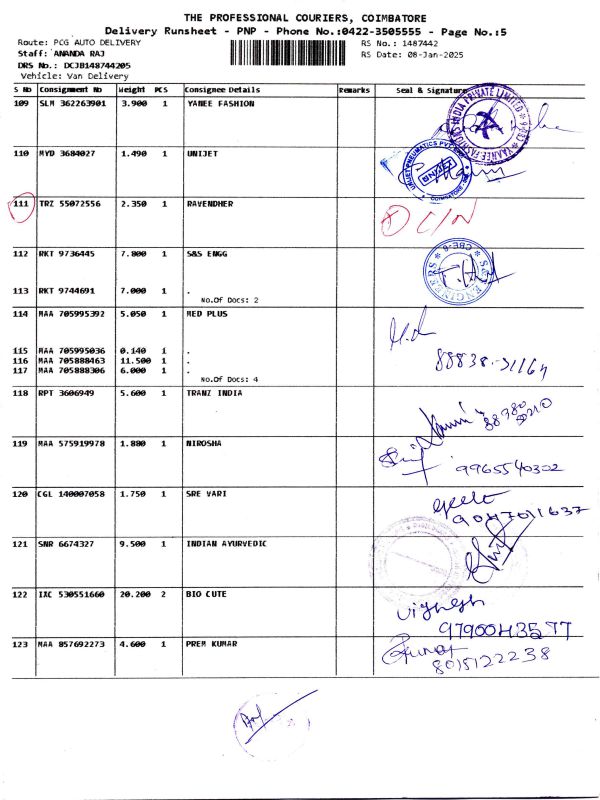 THE PROFESSIONAL COURIERS, COIMBATORE
Delivery Runsheet - PNP - Phone No.:0422-3505555 - Page No.:5
Route: PCG AUTO DELIVERY
RS No.: 1487442
Staff: ANANDA RAJ
RS Date: 08-Jan-2025
DRS No.: DCJB148744205
Vehicle: Van Delivery
S No Consignment No Weight PCS Consignee Details Remarks Seal & Signature
109 SLM 362263901 3.900 1 YANEE FASHION
110 MYD 3684027 1.490 1 UNIJET
111 TRZ 55072556 2.350 1 RAVENDHER
112 RKT 9736445 7.800 1 S&S ENGG
113 RKT 9744691 7.000 1 .
No.Of Docs: 2
114 MAA 705995392 5.050 1 MED PLUS
88838-31164
115 MAA 705995036 0.140 1 .
116 MAA 705888463 11.500 1 .
117 MAA 705888306 6.000 1 .
No.Of Docs: 4
118 RPT 3606949 5.600 1 TRANZ INDIA
119 MAA 575919978 1.880 1 NIROSHA
9965540302
120 CGL 140007058 1.750 1 SRE VARI
9047011637
121 SNR 6674327 9.500 1 INDIAN AYURVEDIC
122 IXC 530551660 20.200 2 BIO CUTE
Vighesh
9790043577
123 MAA 857692273 4.600 1 PREM KUMAR
8015122238